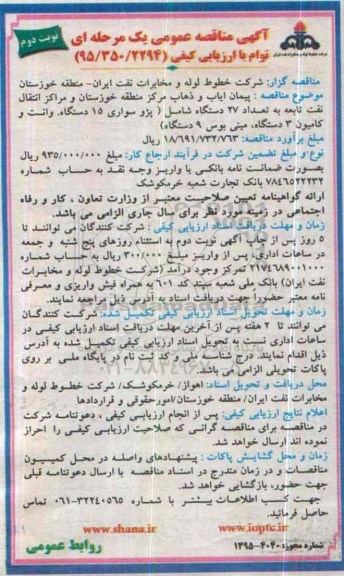 آگهی مناقصه عمومی یک مرحله ای
توام با ارزیابی کیفی (۹۵/۳۵۰/۲۲۹۴)
نوبت دوم
مناقصه گزار: شرکت خطوط لوله و مخابرات نفت ایران- منطقه خوزستان
موضوع مناقصه : پیمان ایاب و ذهاب مرکز منطقه خوزستان و مراکز انتقال
نفت تابعه به تعداد ۲۷ دستگاه شامل ( پژو سواری ۱۵ دستگاه، وانت و
کامیون ۳ دستگاه، مینی بوس ۹ دستگاه)
مبلغ برآورد مناقصه: ۱۸/۶۹۱/۷۳۲/۷۶۳ ریال
نوع و مبلغ تضمین شرکت در فرآیند ارجاع کار: مبلغ ۹۳۵/۰۰۰/۰۰۰ ریال
بصورت ضمانت نامه بانکی یا واریز وجه نقد به حساب شماره
۷۸۴۶۵۲۲۲۳۲ بانک تجارت شعبه خرمکوشک
ارائه گواهینامه تعیین صلاحیت معتبر از وزارت تعاون ، کار و رفاه
اجتماعی در زمینه مورد نظر برای سال جاری الزامی می باشد.
زمان و مهلت دریافت اسناد ارزیابی کیفی : شرکت کنندگان می توانند تا
۵ روز پس از چاپ آگهی نوبت دوم به استثناء روزهای پنج شنبه و جمعه
در ساعات اداری، پس از واریز مبلغ ۳۰۰/۰۰۰ ریال به حساب شماره
۲۱۷۴۶۸۹۰۰۱۰۰۰ تمرکز وجوه درآمد (شرکت خطوط لوله و مخابرات
نفت ایران) بانک ملی شعبه سپند کد ۶۰۱ به همراه فیش واریزی و معرفی
نامه معتبر حضوراً جهت دریافت اسناد به آدرس ذیل مراجعه نمایند.
زمان و مهلت تحویل اسناد ارزیابی کیفی تکمیل شده: شرکت کنندگان
می توانند تا ۲ هفته پس از آخرین مهلت دریافت اسناد ارزیابی کیفی در
ساعات اداری نسبت به تحویل اسناد ارزیابی کیفی تکمیل شده به آدرس
ذیل اقدام نمایند. درج شناسه ملی و کد ثبت نام در پایگاه ملی بر روی
پاکات تحویلی الزامی می باشد.
محل دریافت و تحویل اسناد: اهواز/ خرمکوشک/ شرکت خطوط لوله و
مخابرات نفت ایران/ منطقه خوزستان/امورحقوقی و قراردادها
اعلام نتایج ارزیابی کیفی: پس از انجام ارزیابی کیفی ، دعوتنامه شرکت
در مناقصه برای مناقصه گرانی که صلاحیت ارزیابی کیفی را احراز
نموده اند ارسال خواهد شد.
زمان و محل گشایش پاکات : پیشنهادهای واصله در محل کمیسیون
مناقصات و در زمان مندرج در اسناد مناقصه با ارسال دعوتنامه قبلی
جهت حضور، بازگشایی خواهد شد.
جهت کسب اطلاعات بیشتر با شماره ۳۲۲۴۰۵۶۵-۰۶۱ تماس
حاصل فرمائید.
www.shana.ir www.ioptc.ir
شماره مجوزه ۴۰۴۰-۱۳۹۵ روابط عمومی